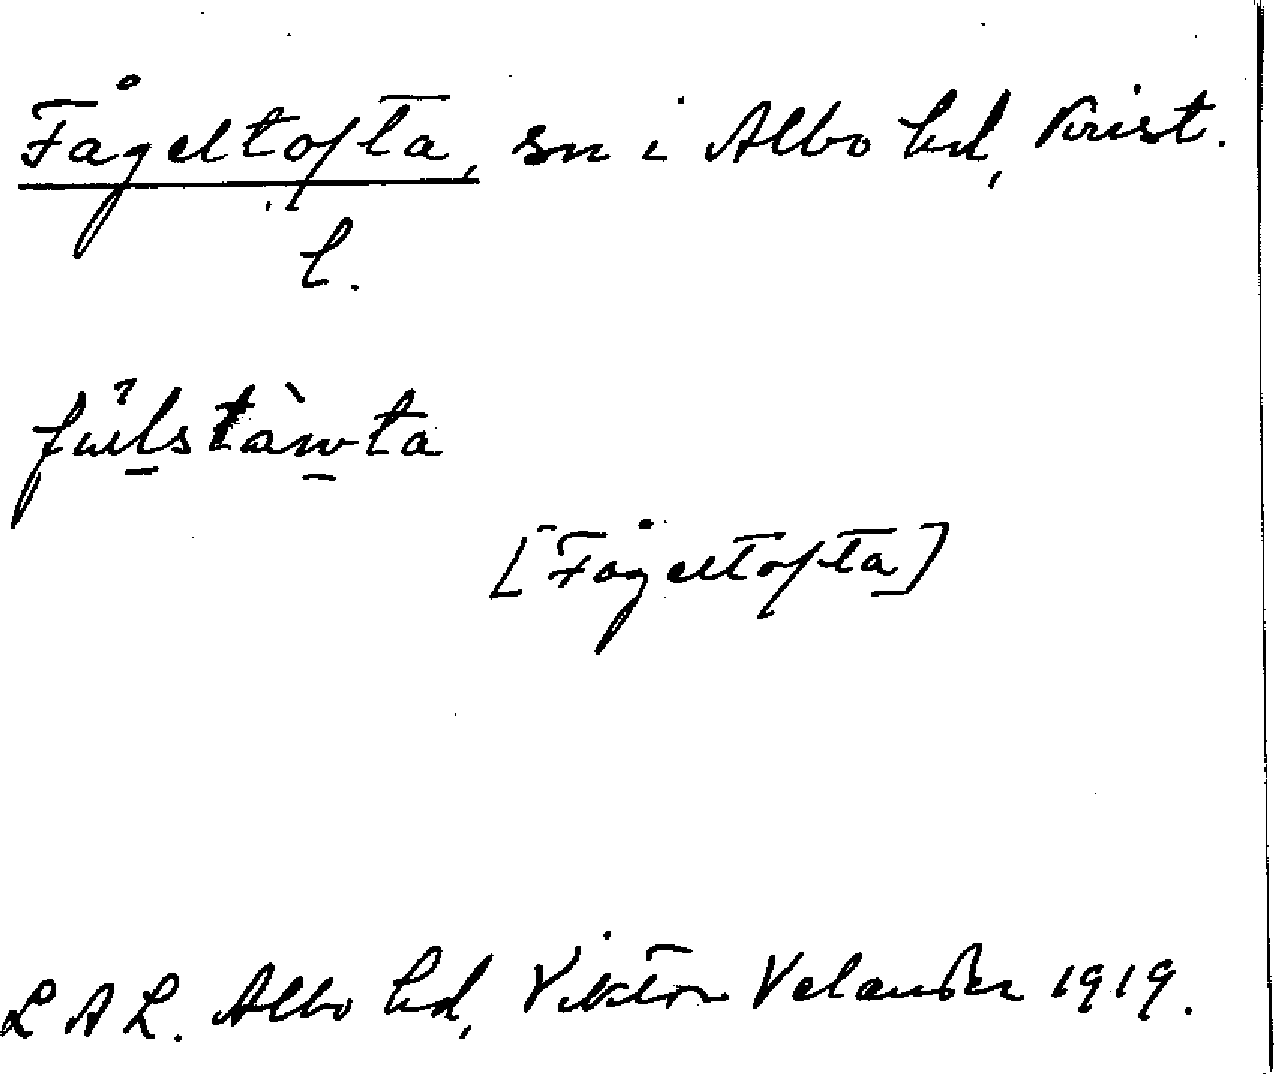 Fågeltofta, sn i Albo hd, Krist.
l.
fu̇lstàwta
[Fågeltofta]
LAL. Albo hd, Viktor Velander 1919.